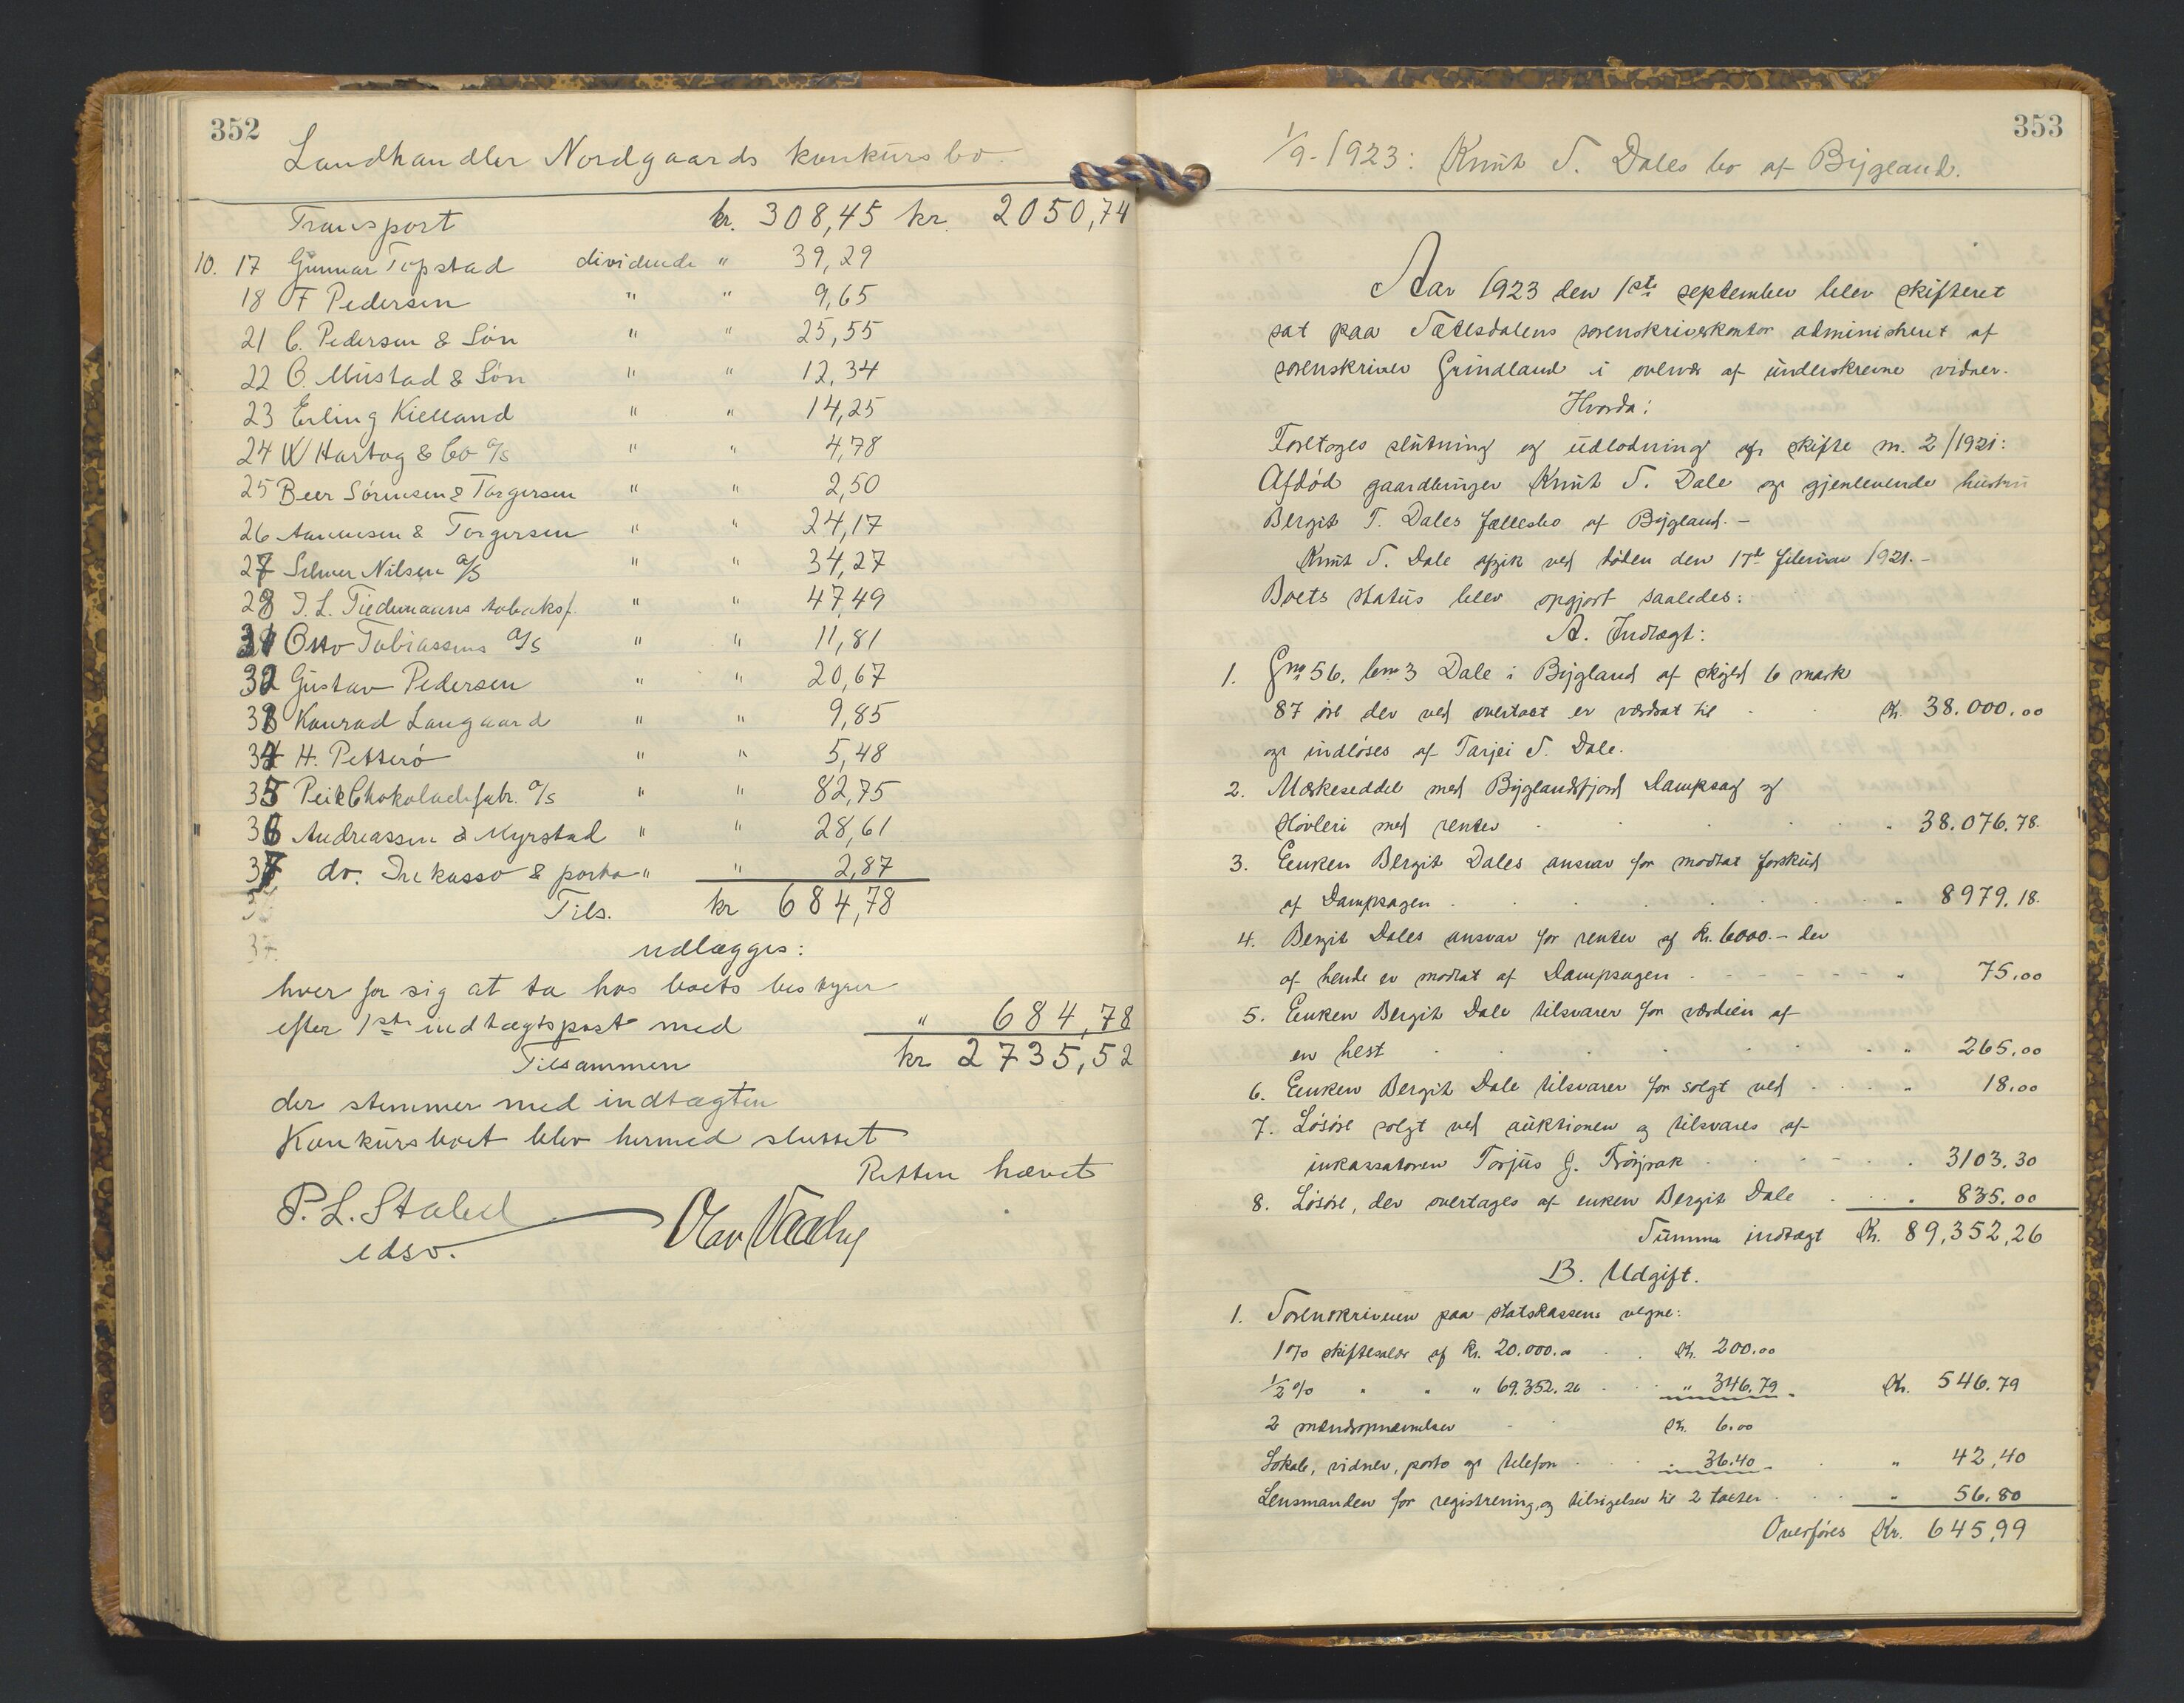 352
Landhandler Nordgaards konkursbo.
Transport kr. 308,45 kr. 2050,74
10. 17 Gunnar Topstad dividende " 39,29
18 F Pedersen " " 9,65
21 C. Pedersen & Søn " " 25,55
22 O. Mustad & Søn " " 12,34
23 Erling Kielland " " 14,25
24 W Hartog & Co a/s " " 4,78
25 Beer Sörensen & Torgersen " " 2,50
26 Aanensen & Torgersen " " 24,17
27 Selmer Nilsen a/s " " 34,27
28 J. L. Tiedemanns tobaksf. " " 47,49
31 Otto Tobiassens a/s " " 11,81
32 Gustav Pedersen " " 20,67
33 Konrad Langaard " " 9,85
34 H. Petterö " " 5,48
35 Peik Chokoladefabr. a/s " " 82,75
" 36 Andreassen & Myrstad " " 28,61
37 do. Inkasso & porto " " 2,87
Tils. kr 684,78
37.
udlægges:
hver for sig at ta hos boets bestyrer
efter 1ste indtægtspost med " 684,78
Tilsammen kr 2735,52
der stemmer med indtægten
Konkursboet blev hermed sluttet
Retten hævet
P. L. Stabel
edsv.
Olav
353
1/9-1923: Knut T. Dales bo af Bygland.
Aar 1923 den 1ste september blev skifteret
sat paa Sætesdalens sorenskriverkontor administreret af
sorenskriver Grindland i overvær af underskrevne vidner.
Hvorda:
Foretoges slutning og udlodning af skifte nr. 2/1921:
Afdød gaardbruger Knut T. Dale og gjenlevende hustru
Bergit T. Dales fællesbo af Bygland. -
Knut T. Dale afgik ved døden den 17de februar 1921. -
Boets status blev opgjort saaledes:
A. Indtægt:
1. Gno 56, bno 3 Dale i Bygland af skyld 6 mark
87 øre der ved overtaxt er værdsat til Kr. 38.000.00
og indløses af Tarjei T. Dale.
2. Maskeseddel med Byglandsfjord Dampsag og
Høvleri med renter . . . . " 38.076.78.
3. Enken Bergit Dales ansvar for modtat forskud
af Dampsagen . . . . . " 8979.18.
4. Bergit Dales ansvar for renter af Kr. 6000.- der
af hende er modtat af Dampsagen - - - - - - " 75.00
5. Enken Bergit Dale tilsvarer for værdien af
en hest . . . . . . " 265.00
6. Enken Bergit Dale tilsvarer for solgt ved . . . " 18.00
7. Løsøre solgt ved auktionen og tilsvares af
inkassatoren Torjus G. Frøysak . . . . . 3103.30
8. Løsøre, der overtages af enken Bergit Dale . . . " 835.00
Summa indtægt Kr. 89,352,26
B. Udgift.
1. Sorenskriveren paa statskassens vegne:
1% skiftesalær af Kr. 20.000.00 . . Kr. 200.00
1/2% " " " 69.352.26 . . " 346.79. Kr. 546.79
2 mændsopnævnelser - - Kr. 6.00
Lokale, vidner, porto og telefon . . . " 36.40 - . " 42,40
Lensmanden for registrering, og tilsigelser til 2 taxter . . . " 56.80
Overføres Kr. 645,99